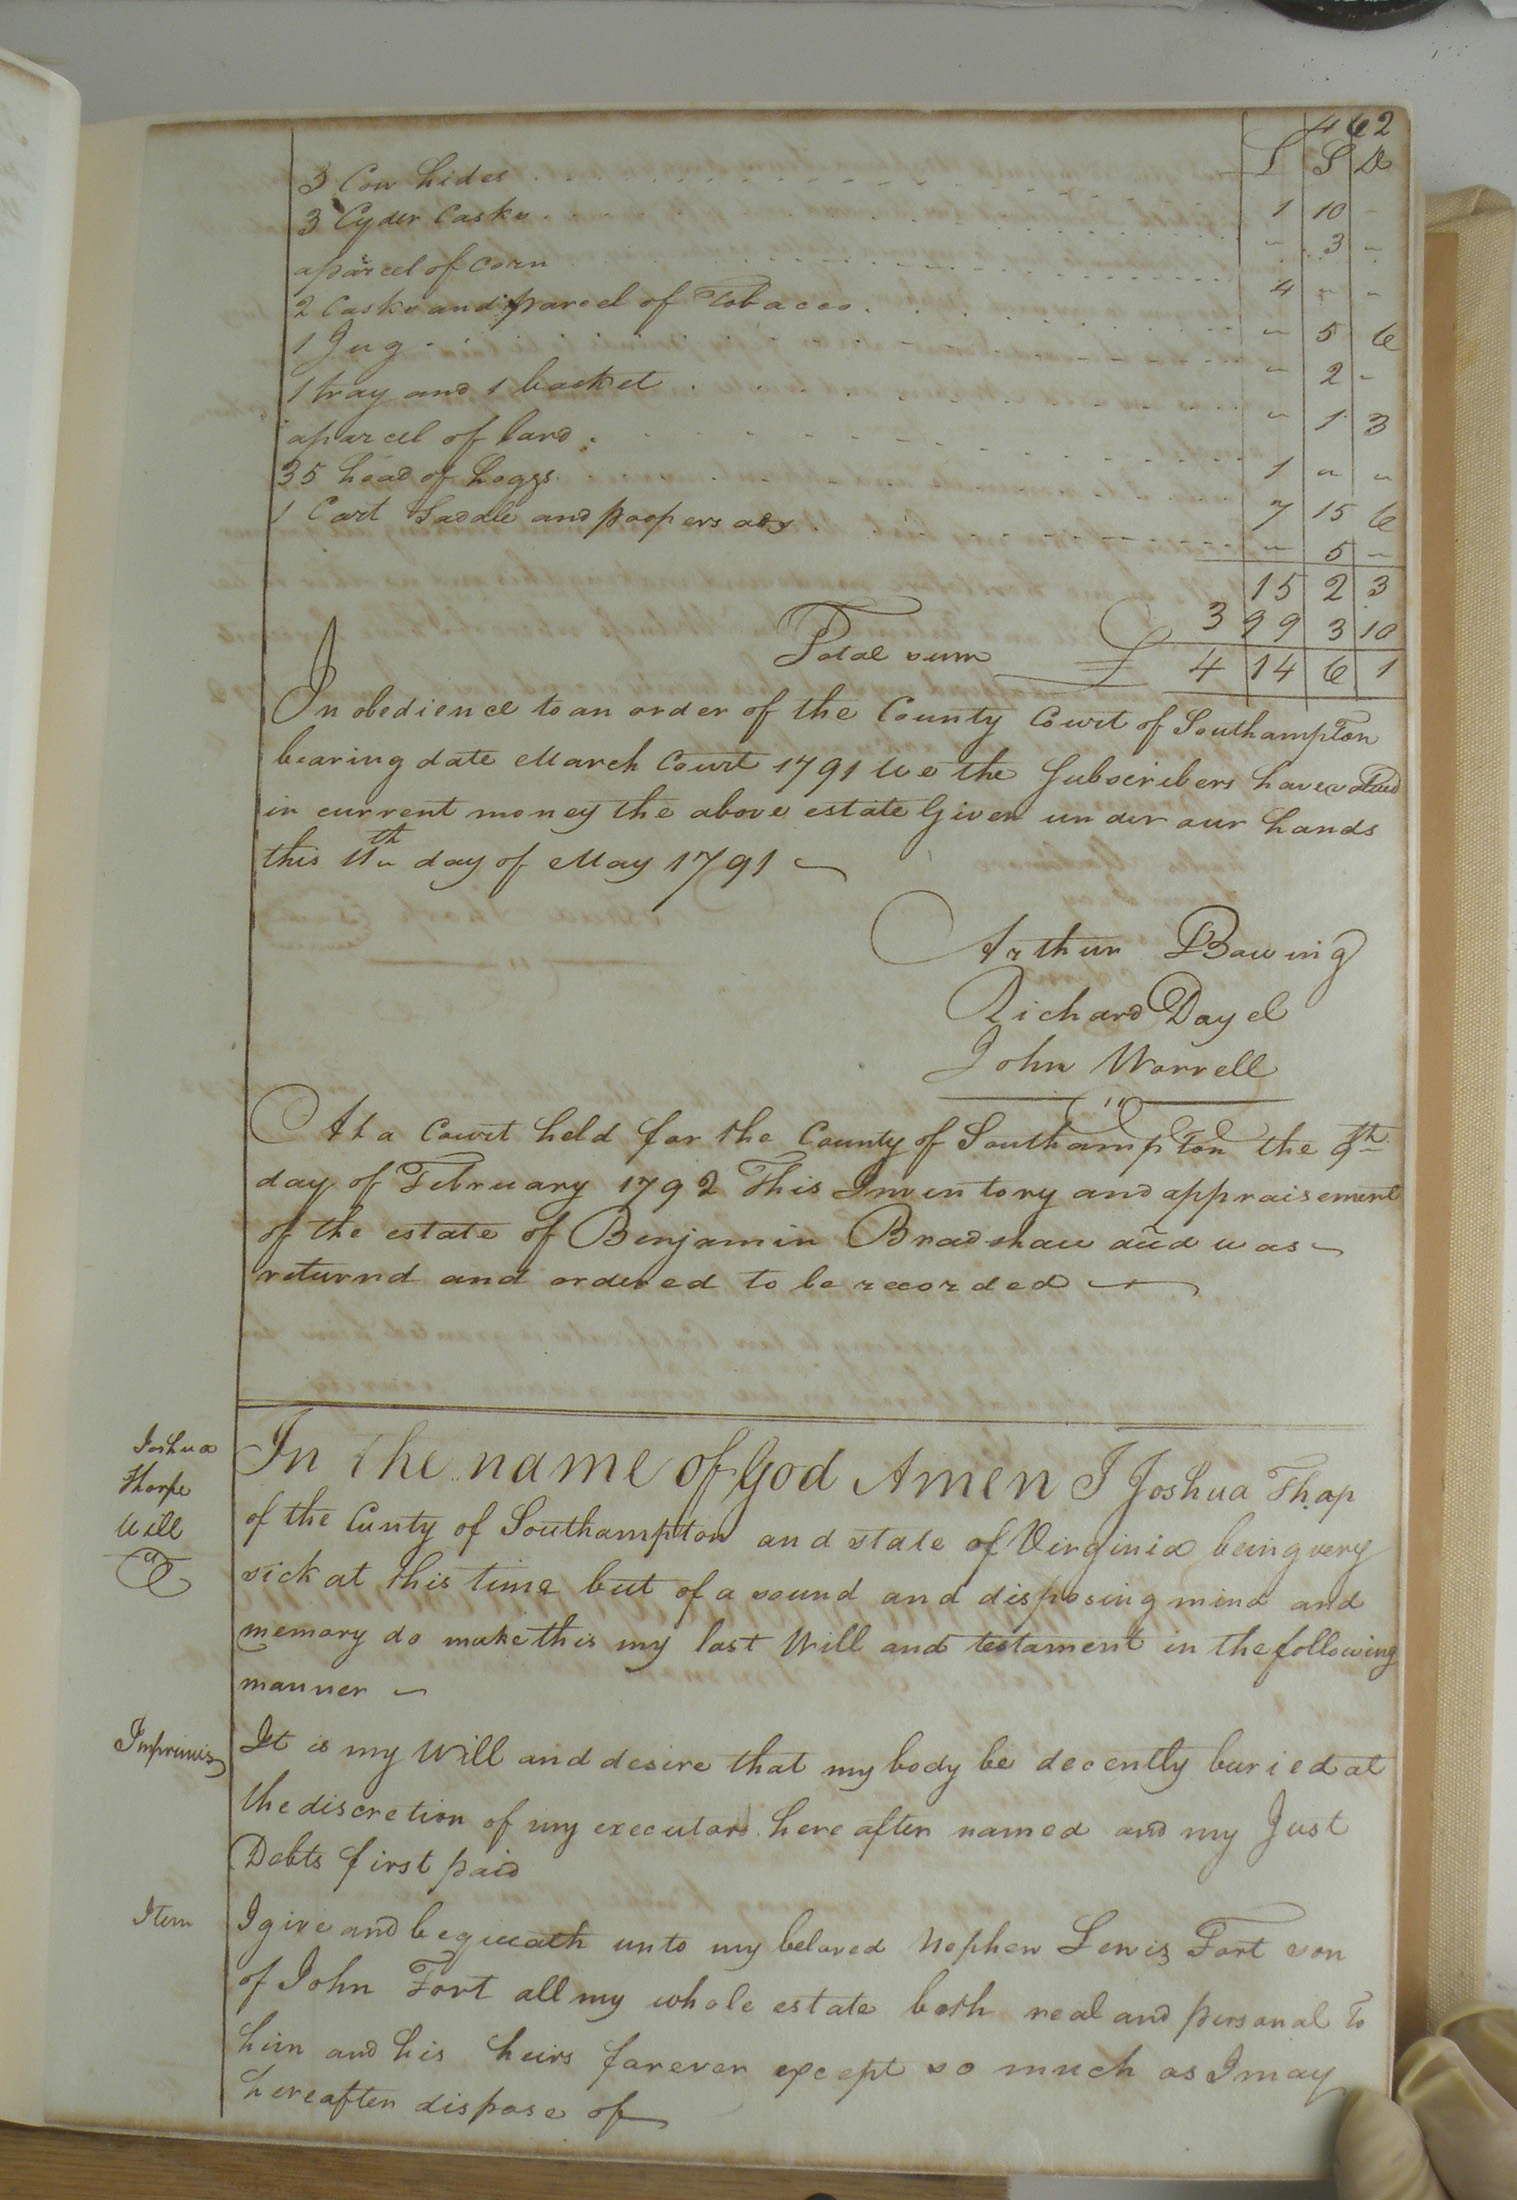 462
£ S D
3 Cow hides . . . 1 10 -
3 Cyder Casks . . . - 3 -
a parcel of Corn . . . 4 - -
2 Casks and parcel of Tobacco . . . - 5 6
1 Jug . . . - 2 -
1 tray and 1 basket . . . - 1 3
a parcel of lard . . . 1 - -
35 head of hoggs . . . 7 15 6
1 Cart Saddle and . . . - 5 -
15 2 3
399 3 10
Total sum £ 414 6 1
In obedience to an order of the County Court of Southampton
bearing date March Court 1791 We the Subscribers have valued
in current money the above estate Given under our hands
this 11th day of May 1791
Arthur Bowing
Richard Dayel
John Worrell
At a Court held for the County of Southampton the 9th
day of February 1792 This Inventory and appraisement
of the estate of Benjamin Bradshaw decd was
returnd and ordered to be recorded
Joshua
Thorpe
Will
In the name of God Amen I Joshua Thap
of the Cunty of Southampton and state of Virginia being very
sick at this time but of a sound and disposing mind and
memory do make this my last Will and testament in the following
manner
Imprimis It is my Will and desire that my body be decently buried at
the discretion of my executors here after named and my Just
Debts first paid
Item I give and bequeath unto my beloved Nephew Lewis Fort son
of John Fort all my whole estate both real and personal to
him and his heirs forever except so much as I may
hereafter dispose of